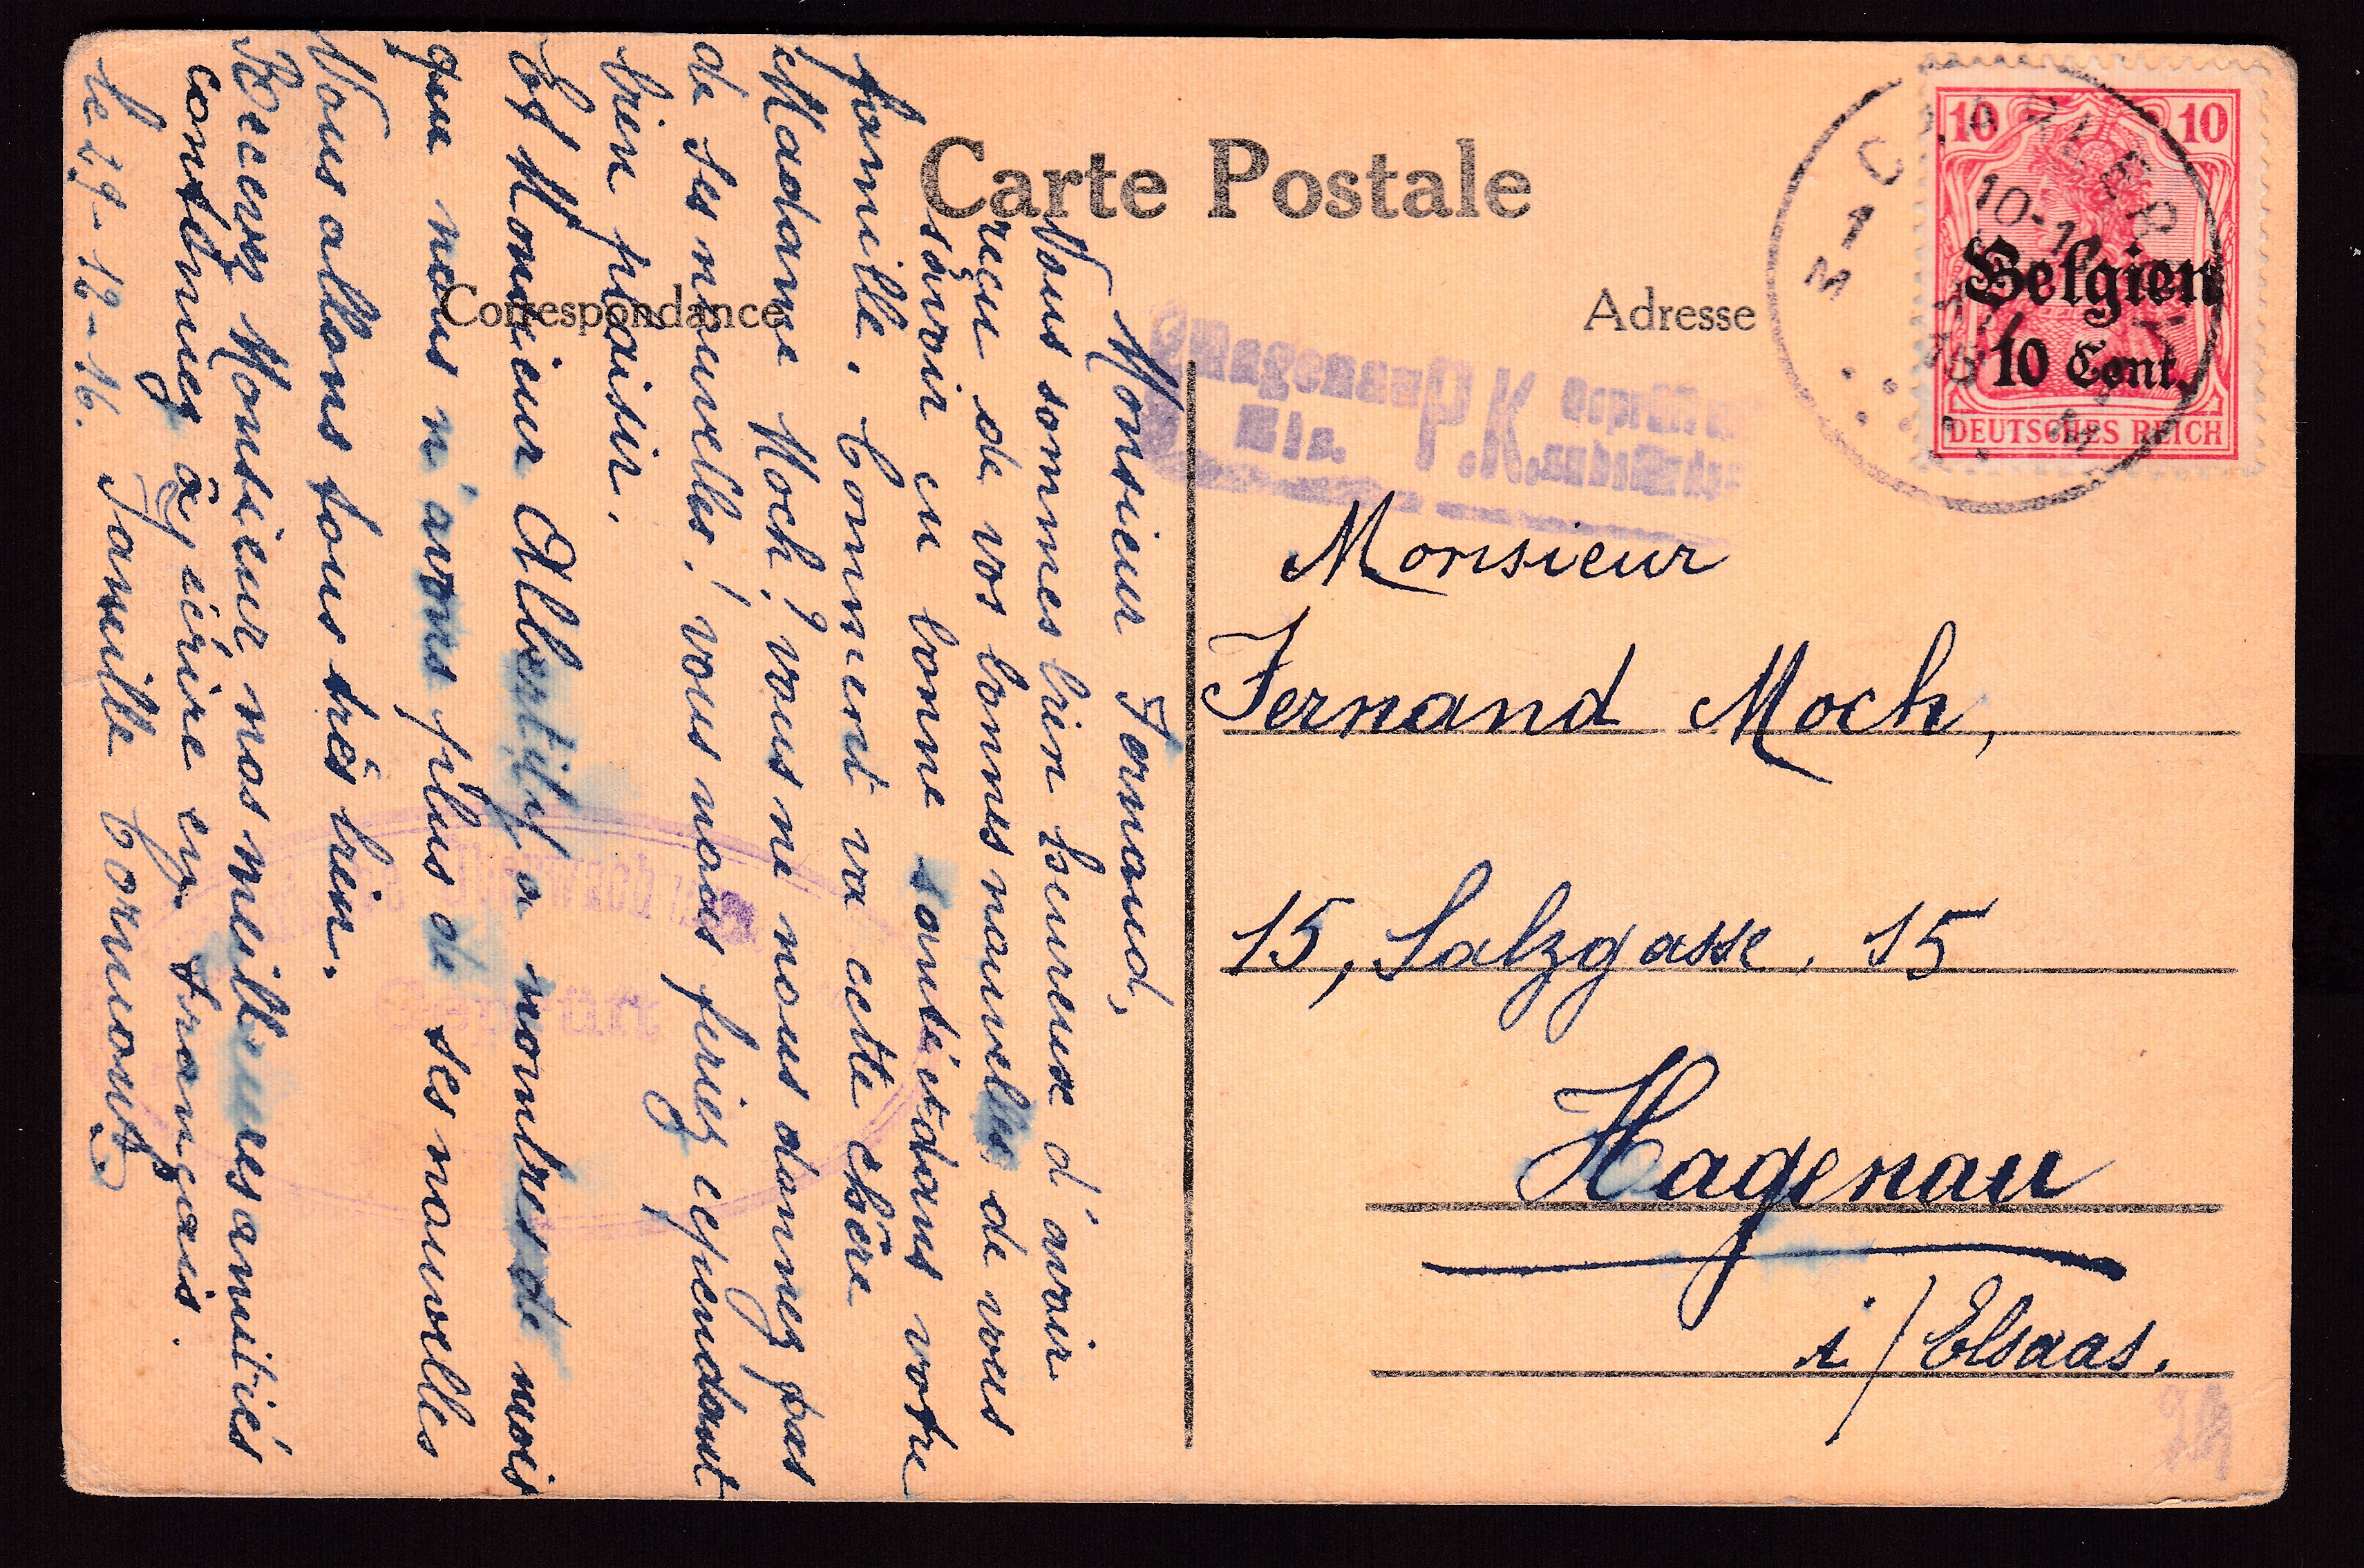 Carte Postale
Correspondance
Adresse
10 10
Belgien
10 Cent.
DEUTSCHES REICH
CHARLEROI
10-1
Hagenau P.K.
Els.
Monsieur
Fernand Moch,
15, Salzgasse, 15
Hagenau
i/Elsaas.
Monsieur Fernand,
Nous sommes bien heureux d'avoir
reçu de vos bonnes nouvelles, de vous
savoir en bonne santé et dans votre
famille. Comment va cette chère
Madame Moch? vous ne nous donnez pas
de ses nouvelles! vous nous feriez cependant
bien plaisir.
Et Monsieur Albert il y a nombres de mois
que nous n'avons plus de ses nouvelles
Nous allons tous très bien.
Recevez Monsieur nos meilleures amitiés
continuez à écrire en français.
Le 29-12-16. Famille
Geprüft